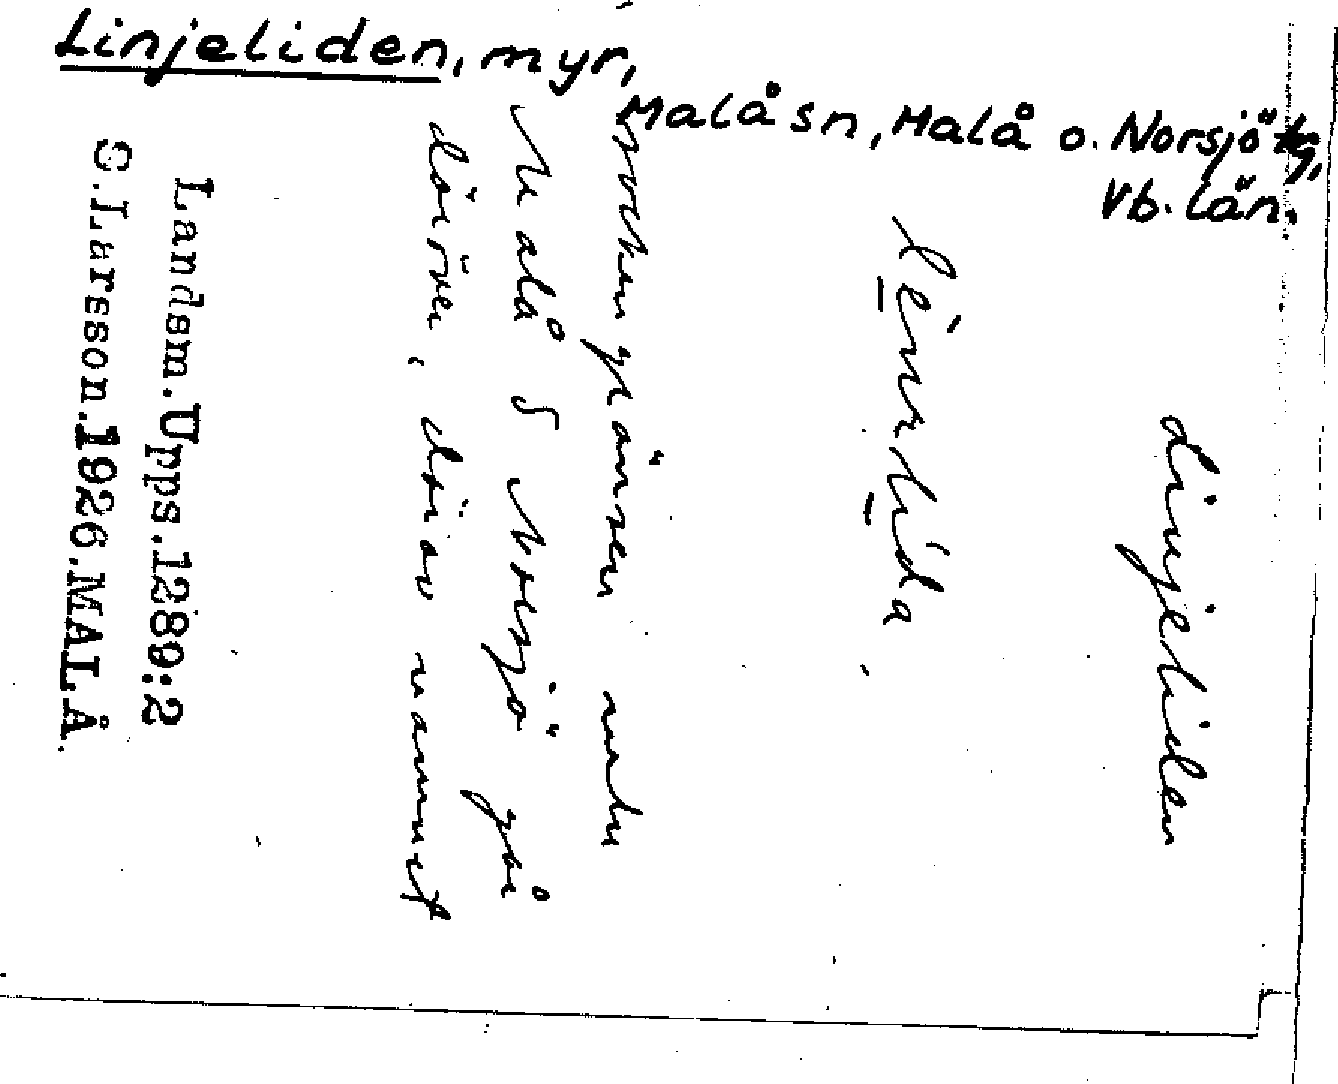 Linjeliden, myr,
Malå sn, Malå o. Norsjö tg,
Vb. län.
Linjeliden
sockengränsen mellan
Malå & Norsjö går
däröver, därav namnet
Landsm.Upps.1289:2
S.Larsson.1926.MALÅ.